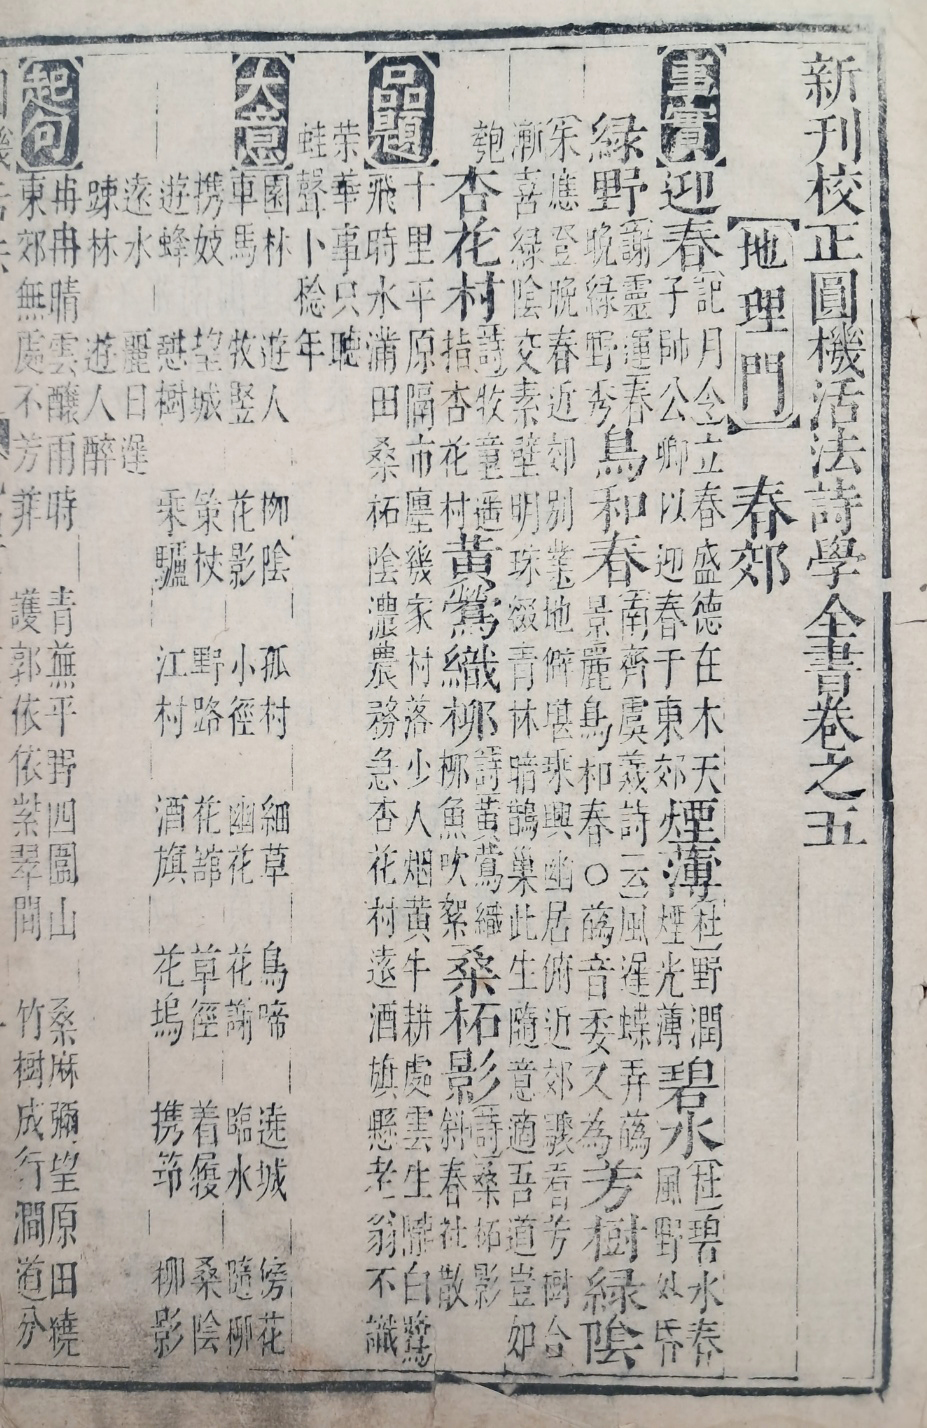 新刊校正圓機活法詩學全書卷之五
地理門 春郊
事實 迎春 記月令立春盛德在木天
子帥公卿以迎春于東郊 煙薄 杜野潤
煙光薄 碧水 杜碧水春
風野外昏
綠野 謝靈運春
晚綠野秀 鳥和春 南齊虞羲詩云風遲蝶弄蘤
景麗鳥和春○蘤音委又為 芳樹綠陰
朱應登晚春近郊別業地僻堪乘興幽居俯近郊譙看芳樹合
漸喜綠陰交素壁明珠綴青林暗鵲巢此生隨意適吾道豈如
匏 杏花村 詩牧童遥
指杏花村 黃鶯織柳 詩黃鶯織
柳魚吹絮 桑柘影 詩桑柘影
斜春社散
品題 十里平原隔市廛幾家村落少人烟黃牛耕處雲生隴白鷺
飛時水滿田桑柘陰濃農務急杏花村遠酒旗懸老翁不識
荣華事只聽
蛙聲卜稔年
大意 園林 遊人 柳陰 孤村 細草 鳥啼 遶城 傍花
車馬 牧竪 花影 小徑 幽花 花謝 臨水 隨柳
携妓 望城 策杖 野路 花舘 草徑 着屐 桑陰
遊蜂 憇樹 乘驢 江村 酒旗 花塢 携笻 柳影
遠水 麗日遲
踈林 遊人醉
起句 冉冉晴雲釀雨時 青蕪平野四圍山 桑麻彌望原田繞
東郊無處不芳菲 護郭依依紫翠間 竹樹成行澗道分